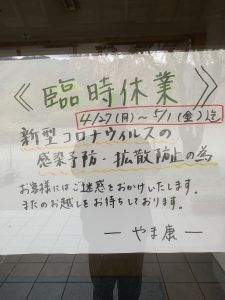 《臨時休業》
4/27(月)～5/1(金)迄
新型コロナウィルスの
感染予防・拡散防止の為
お客様にはご迷惑をおかけいたします。
またのお越しをお待ちしております。
ーやま康ー